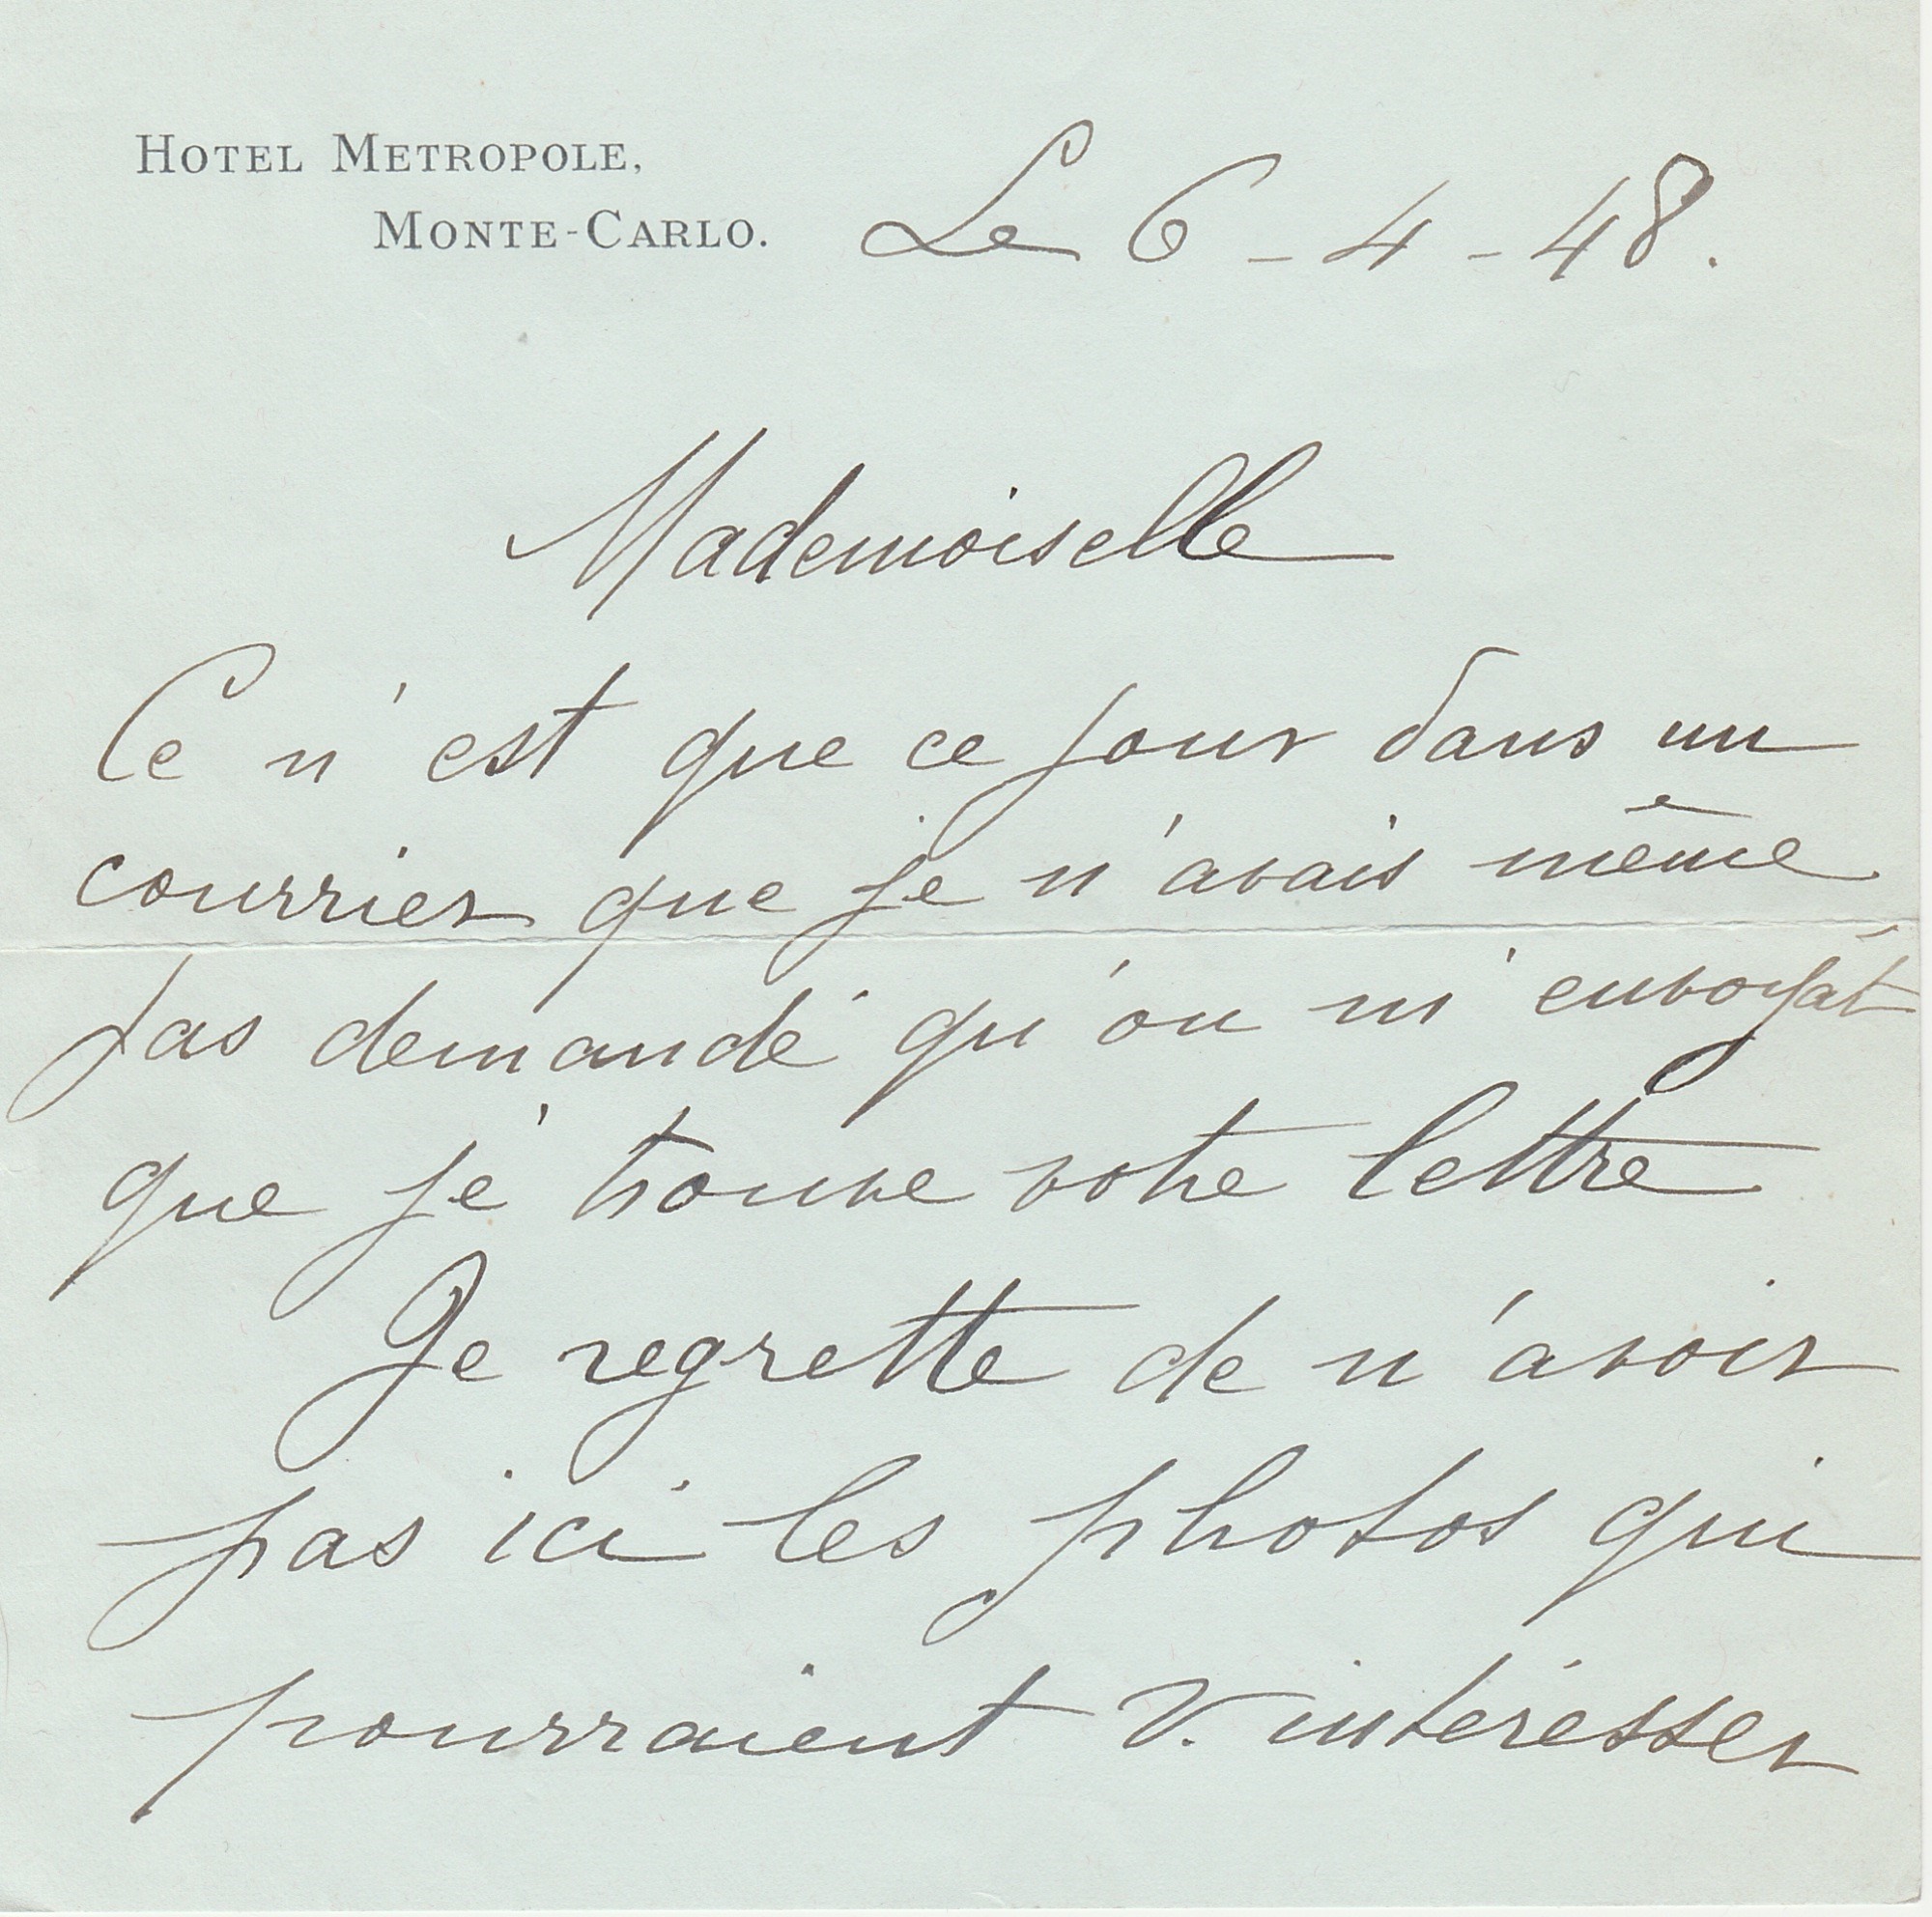 HOTEL METROPOLE,
MONTE-CARLO. Le 6-4-48.
Mademoiselle
Ce n'est que ce jour dans un
courrier que je n'avais même
pas demandé qu'on m'envoyât
que je trouve votre lettre
Je regrette de n'avoir
pas ici les photos qui
pourraient v. intéresser